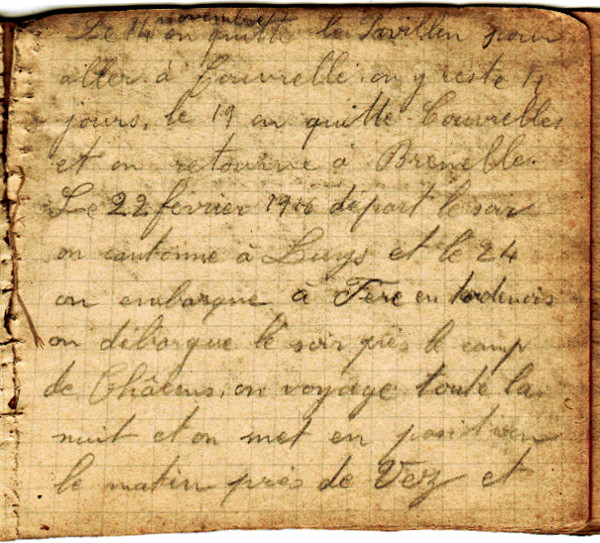 novembre
Le 14 on quitte le Pavillon pour
aller à Couvrelle on y reste 4
jours, le 19 on quitte Couvrelles
et on retourne à Brenelle.
Le 22 fevrier 1916 départ le soir
on cantonne à Luys et le 24
on embarque à Fere en tardenois
on débarque le soir près le camp
de Châlons, on voyage toute la
nuit et on met en position
le matin près de Vez et